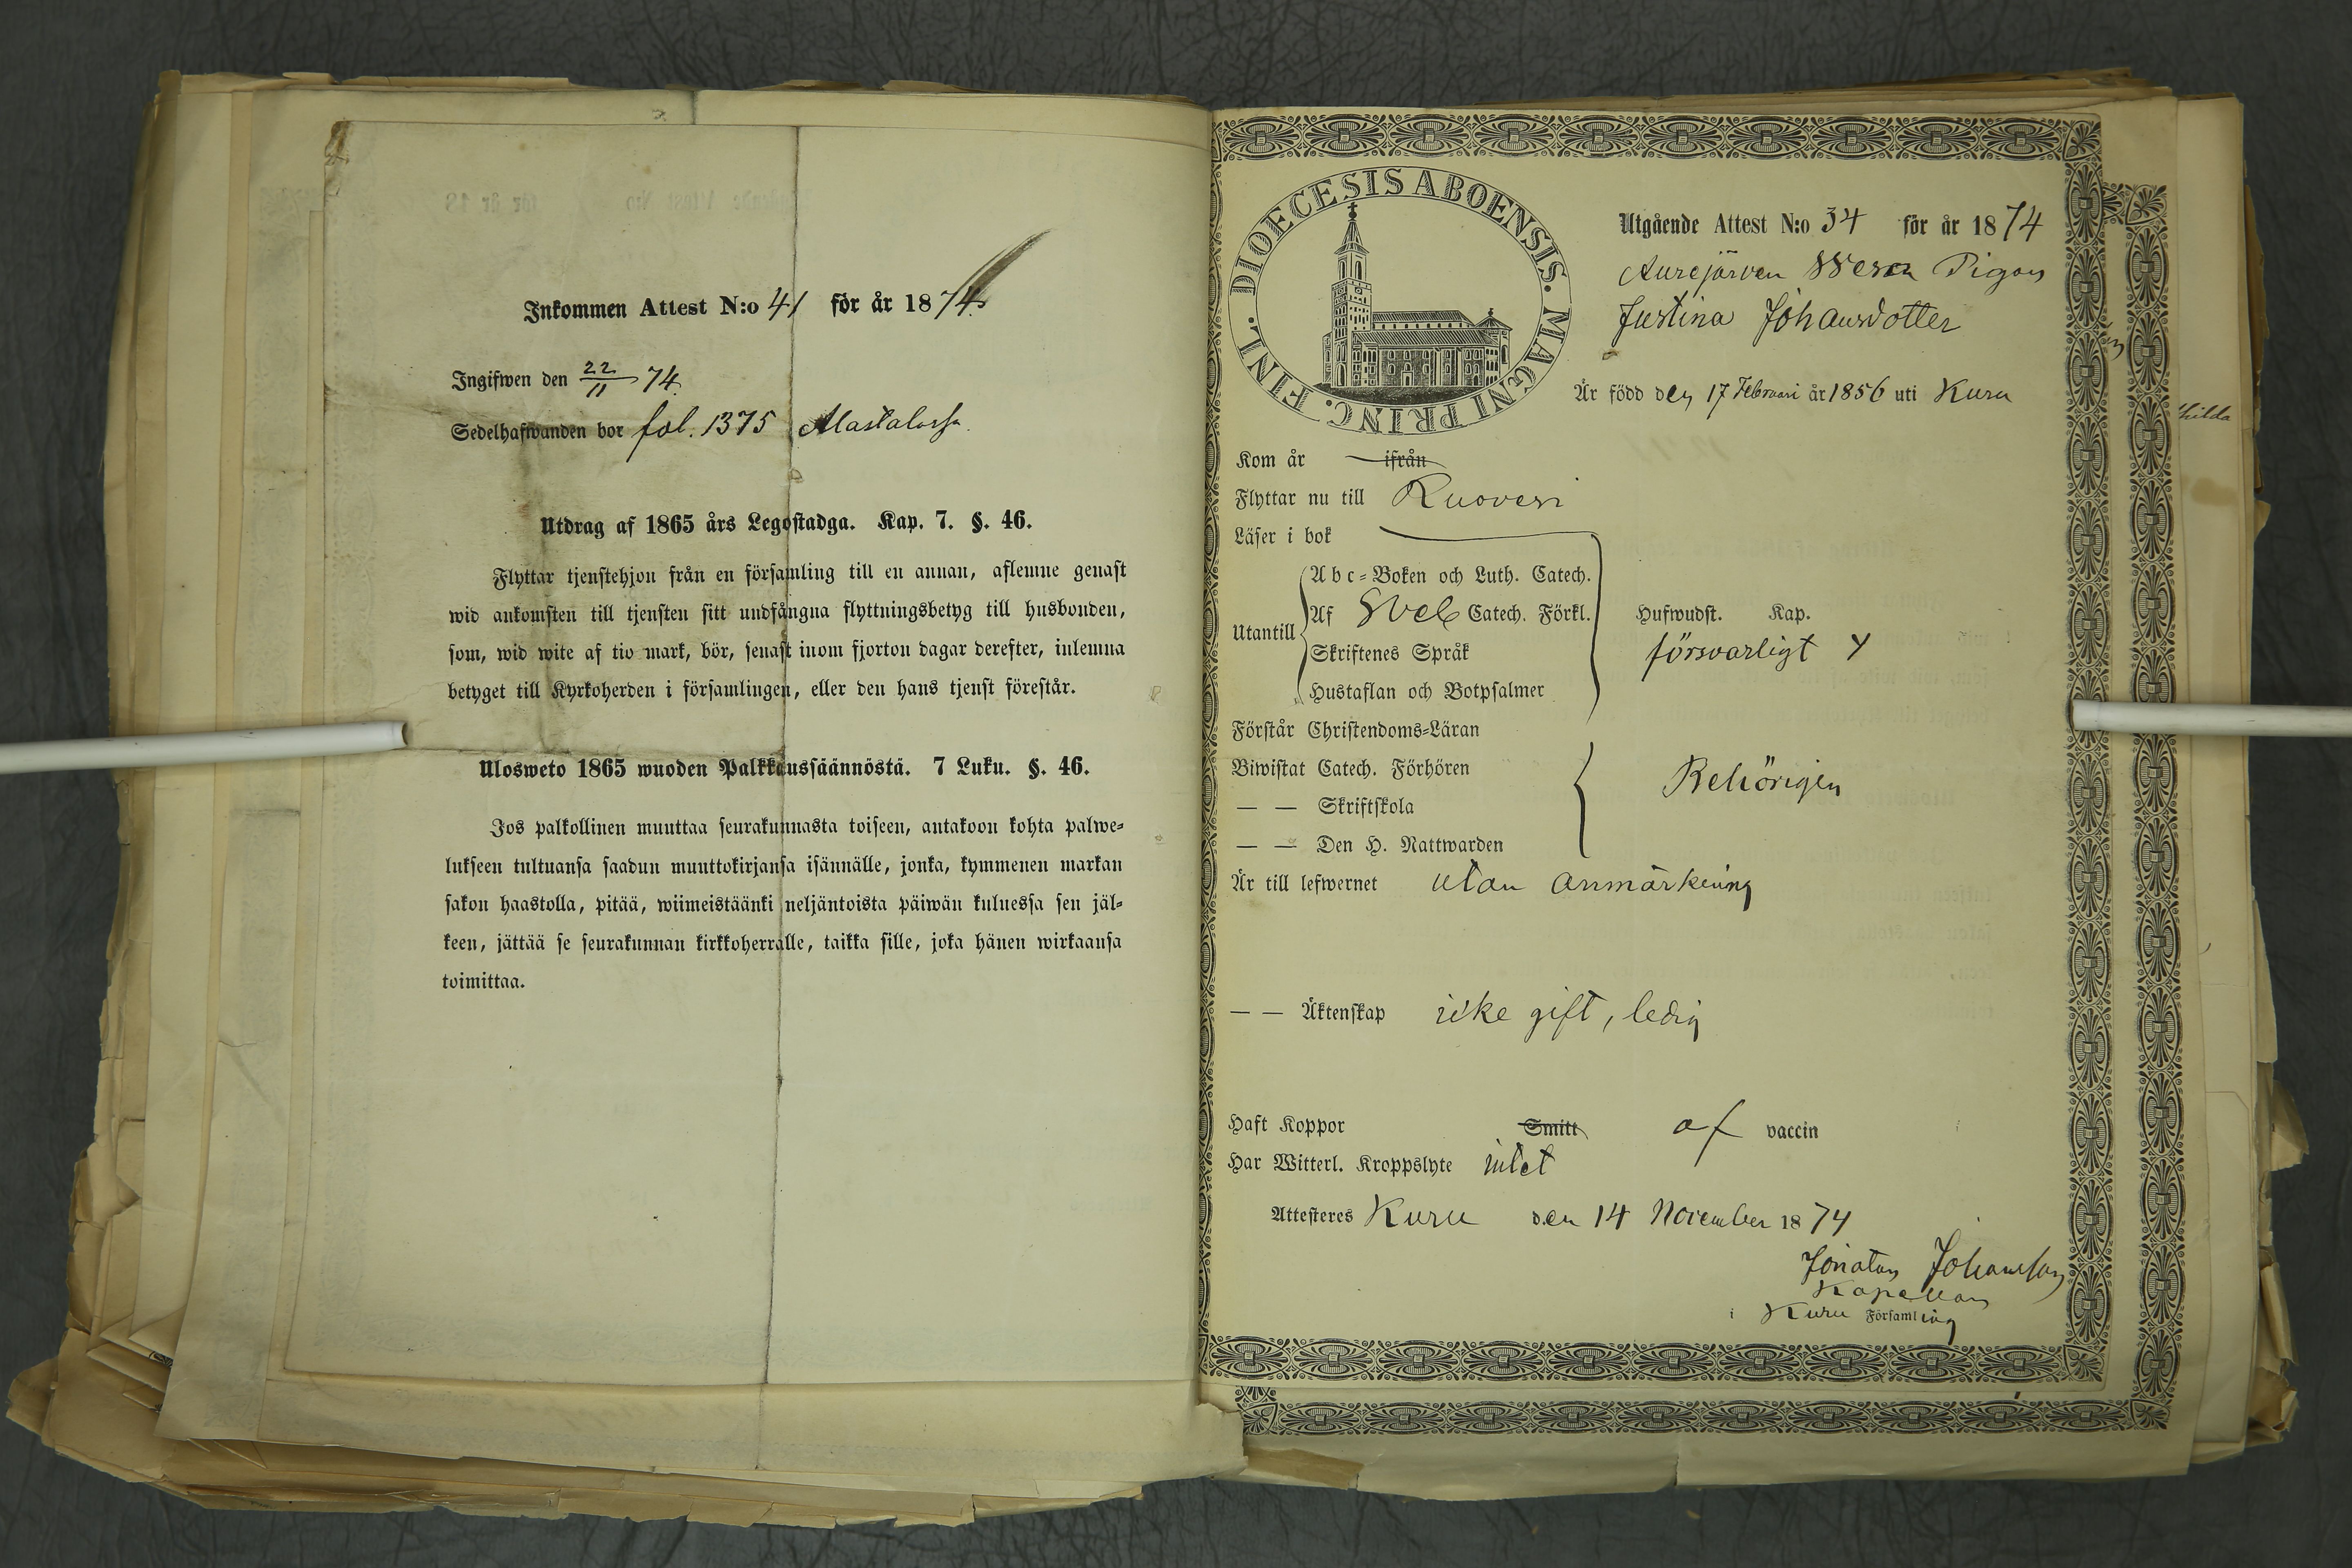 Inkommen Attest N:o 41 för år 1874.
Ingifwen den 22/11 74.
Sedelhafwanden bor fol. 1375
Utdrag af 1865 års Legostadga. Kap. 7. §. 46.
Flyttar tjenstehjon från en församling till en annan, aflemne genast
wid ankomsten till tjensten sitt undfångna flyttningsbetyg till husbonden,
som, wid wite af tio mark, bör, senast inom fjorton dagar derefter, inlemna
betyget till Kyrkoherden i församlingen, eller den hans tjenst förestår.
Ulosweto 1865 wuoden Palkkaussäännöstä. 7 Luku. §. 46.
Jos palkollinen muuttaa seurakunnasta toiseen, antakoon kohta palwe-
lukseen tultuansa saadun muuttokirjansa isännälle, jonka, kymmenen markan
sakon haastolla, pitää, wiimeistäänki neljäntoista päiwän kuluessa sen jäl-
keen, jättää se seurakunnan kirkkoherralle, taikka sille, joka hänen wirkaansa
toimittaa.
DIOECESIS ABOENSIS. MAGNI PRINC. FINL.
Utgående Attest N:o 34 för år 1874
Aurejärven Pigan
Justina Johansdotter
Är född den 17 Februari år 1856 uti Kuru
Kom år ifrån
Flyttar nu till Ruovesi
Läser i bok
Utantill
Abc-Boken och Luth. Catech.
Af Sveb Catech. Förkl. Hufwudst. Kap.
Skriftenes Språk försvarligt
Hustaflan och Botpsalmer
Förstår Christendoms-Läran
Biwistat Catech. Förhören Behörigen
— — Skriftskola
— — Den H. Nattwarden
Är till lefwernet utan anmärkning
— — Äktenskap icke gift, ledig
Haft Koppor Smitt af vaccin
Har Witterl. Kroppslyte intet
Attesteres Kuru den 14 November 1874
Jonatan Johansson
Kapellan
i Kuru Församling
hilda